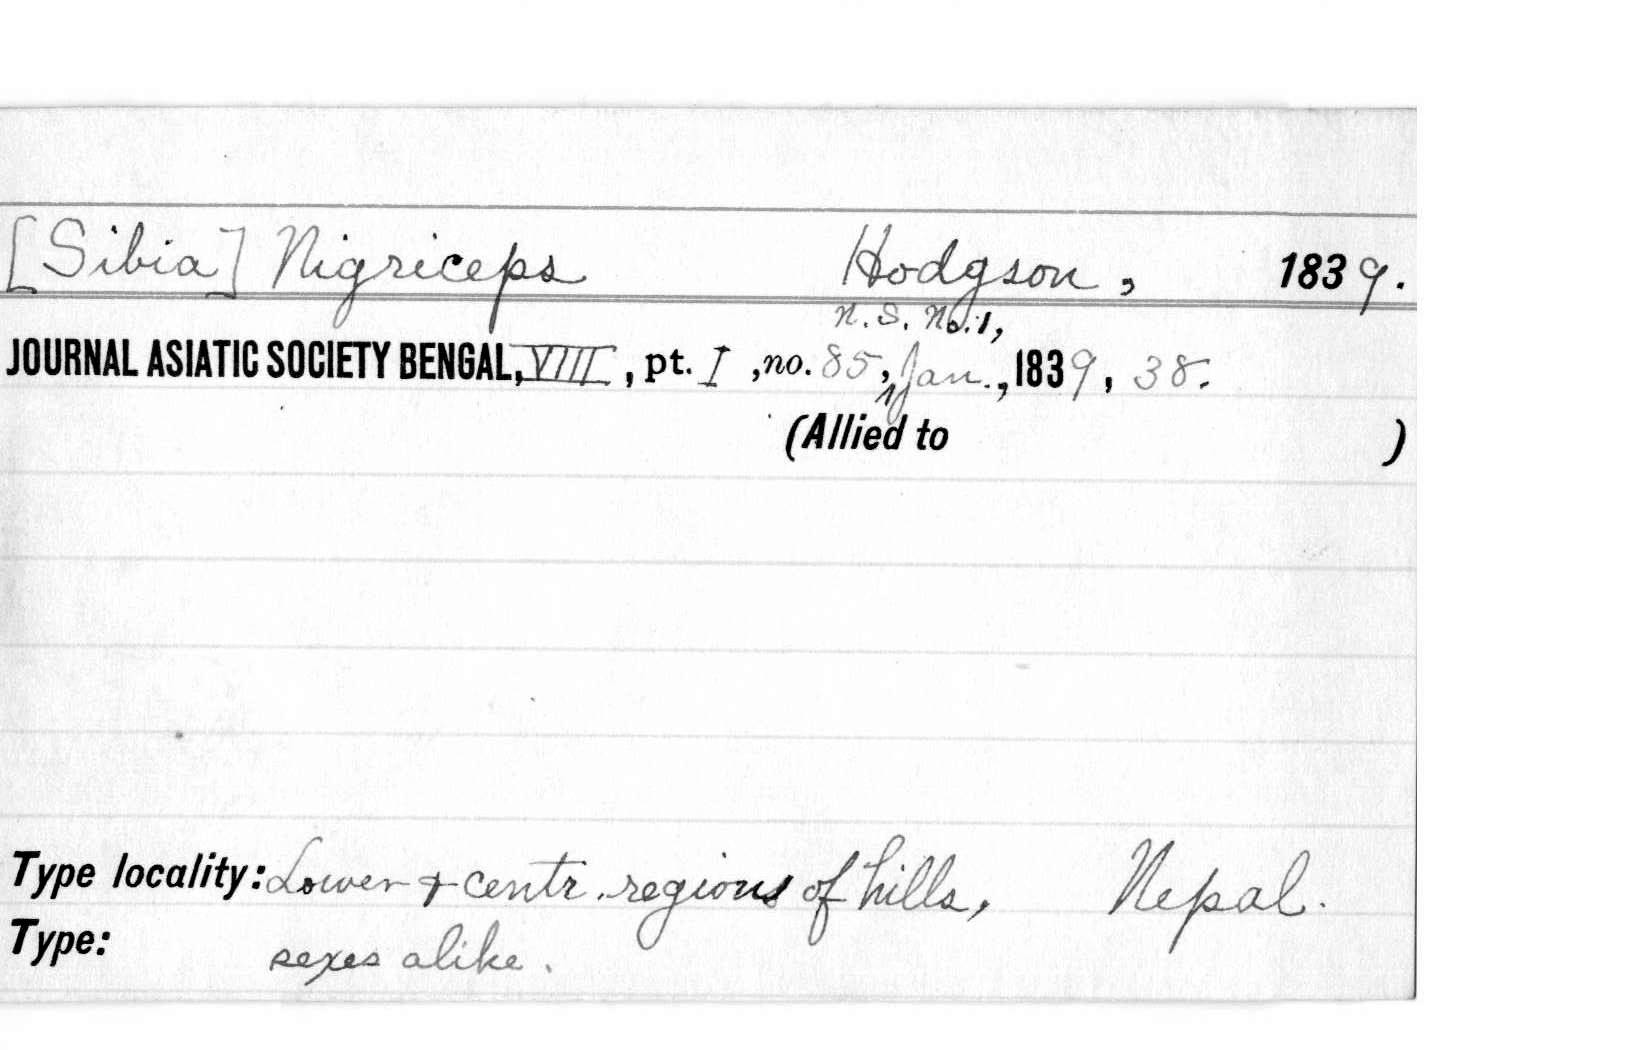 [Sibia] Nigriceps Hodgson, 1839.
N.S. No. 1,
JOURNAL ASIATIC SOCIETY BENGAL, VIII, pt. I, no. 85, Jan., 1839, 38.
(Allied to )
Type locality: Lower & centr. regions of hills, Nepal.
Type: sexes alike.